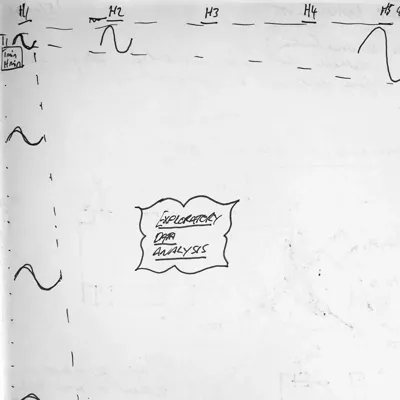 H1 H2 H3 H4 H5
T1
1min
EXPLORATORY
DATA
ANALYSIS